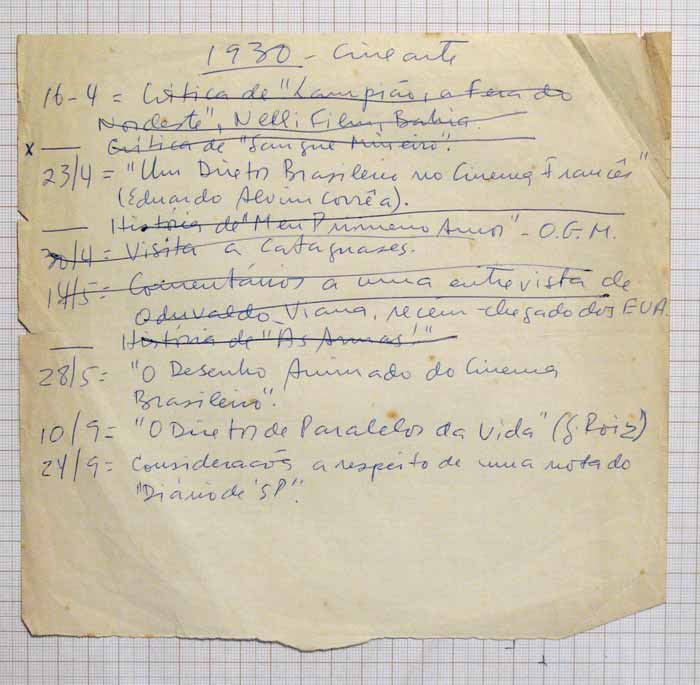 1930 - Cinearte
16-4 = Crítica de "Lampião, a Fera do
Nordeste", Nelli Film, Bahia.
x — Crítica de "Sangue Mineiro".
23/4 = "Um Diretor Brasileiro no Cinema Francês"
(Eduardo Alvim Corrêa).
— História de "Meu Primeiro Amor" - O.G.M.
30/4 = Visita a Cataguases.
14/5 = Comentários a uma entrevista de
Oduvaldo Viana, recém-chegado dos EUA.
— História de "Às Armas!"
28/5 = "O Desenho Animado do Cinema
Brasileiro".
10/9 = "O Diretor de Paralelos da Vida" (J. Roiz)
24/9 = Consideracões a respeito de uma nota do
"Diário de SP".